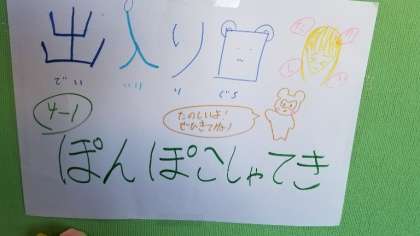 出入り
でいりぐち
4-1
たのしいよ!
ぜひきてね!
ぽんぽこしゃてき